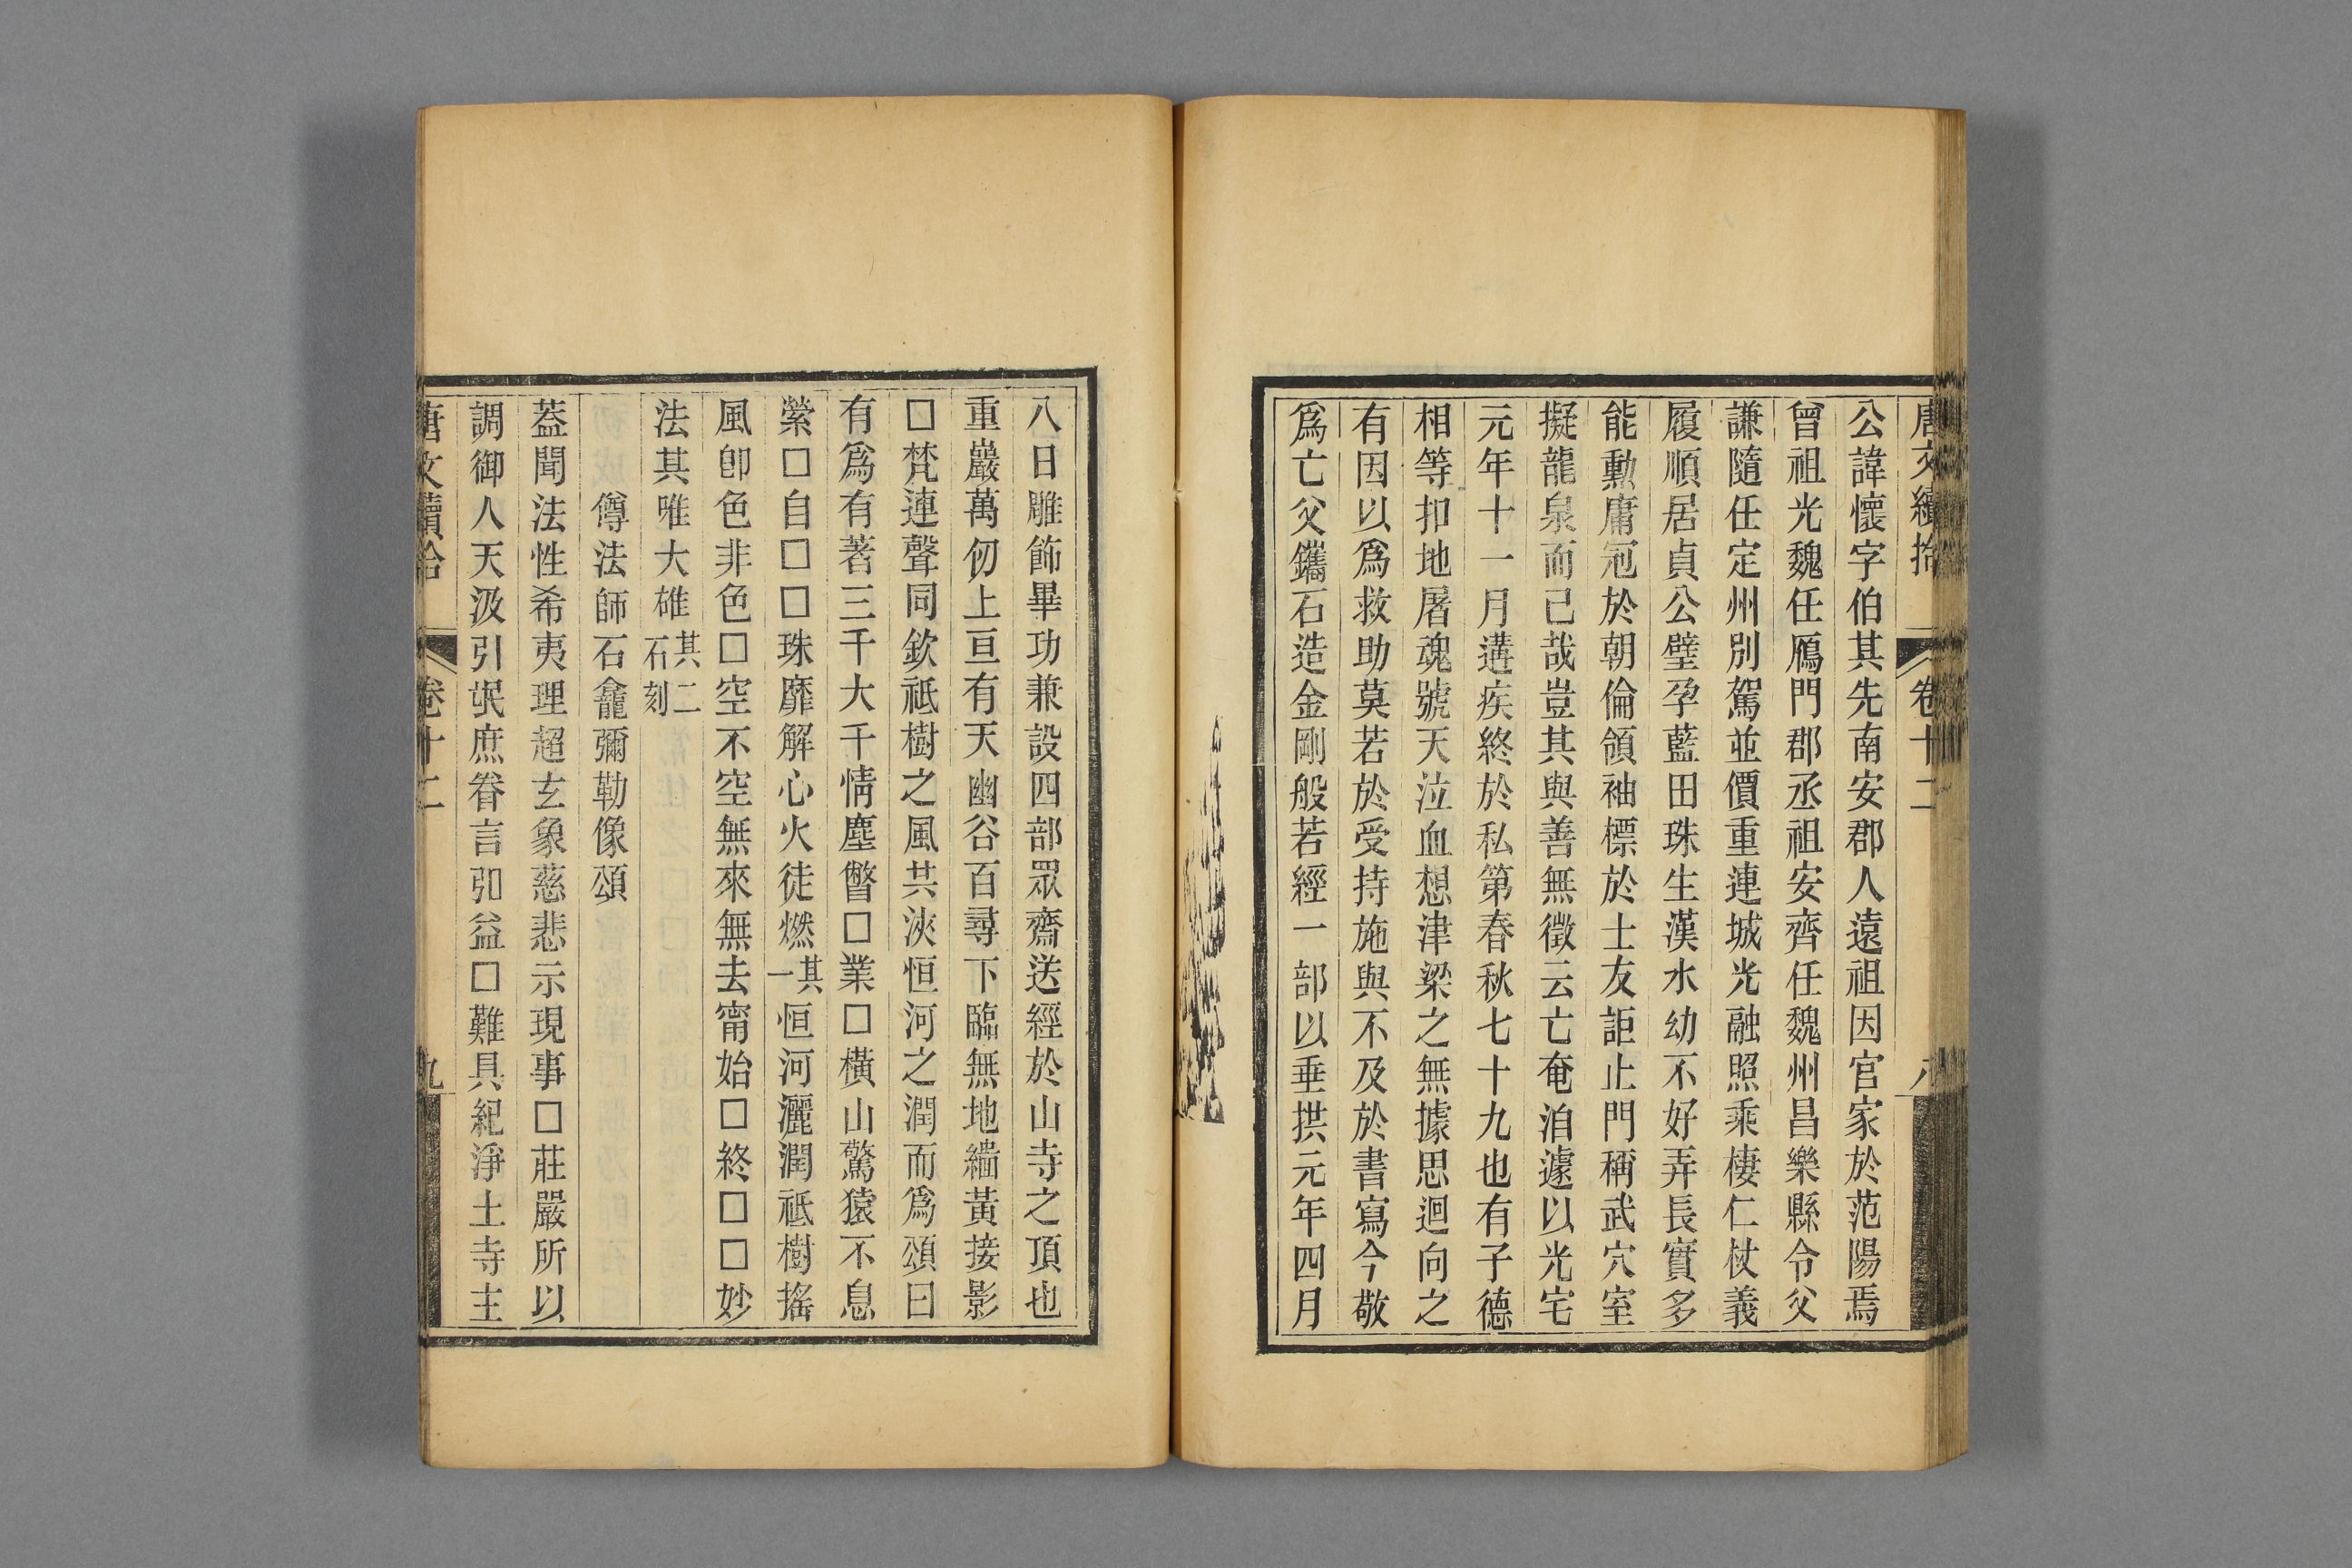 唐文續拾 卷十二 八
公諱懷字伯其先南安郡人遠祖因官家於范陽焉
曾祖光魏任鴈門郡丞祖安齊任魏州昌樂縣令父
謙隨任定州別駕並價重連城光融照乘棲仁杖義
履順居貞公璧孕藍田珠生漢水幼不好弄長實多
能勳庸冠於朝倫領袖標於士友詎止門稱武穴室
擬龍泉而已哉豈其與善無徵云亡奄洎遽以光宅
元年十一月遘疾終於私第春秋七十九也有子德
相等扣地屠魂號天泣血想津梁之無據思迴向之
有因以爲救助莫若於受持施與不及於書寫今敬
爲亡父鑴石造金剛般若經一部以垂拱元年四月
八日雕飾畢功兼設四部眾齋送經於山寺之頂也
重巖萬仞上亘有天幽谷百尋下臨無地緇黃接影
□梵連聲同欽祗樹之風共浹恒河之潤而爲頌曰
有爲有著三千大千情塵瞥□業□橫山驚猿不息
縈□自□□珠靡解心火徒燃其一恒河灑潤祗樹搖
風卽色非色□空不空無來無去甯始□終□□妙
法其唯大雄其二石刻
僔法師石龕彌勒像頌
蓋聞法性希夷理超玄象慈悲示現事□莊嚴所以
調御人天汲引氓庶眷言弘益□難具紀淨土寺主
唐文續拾 卷十二 九